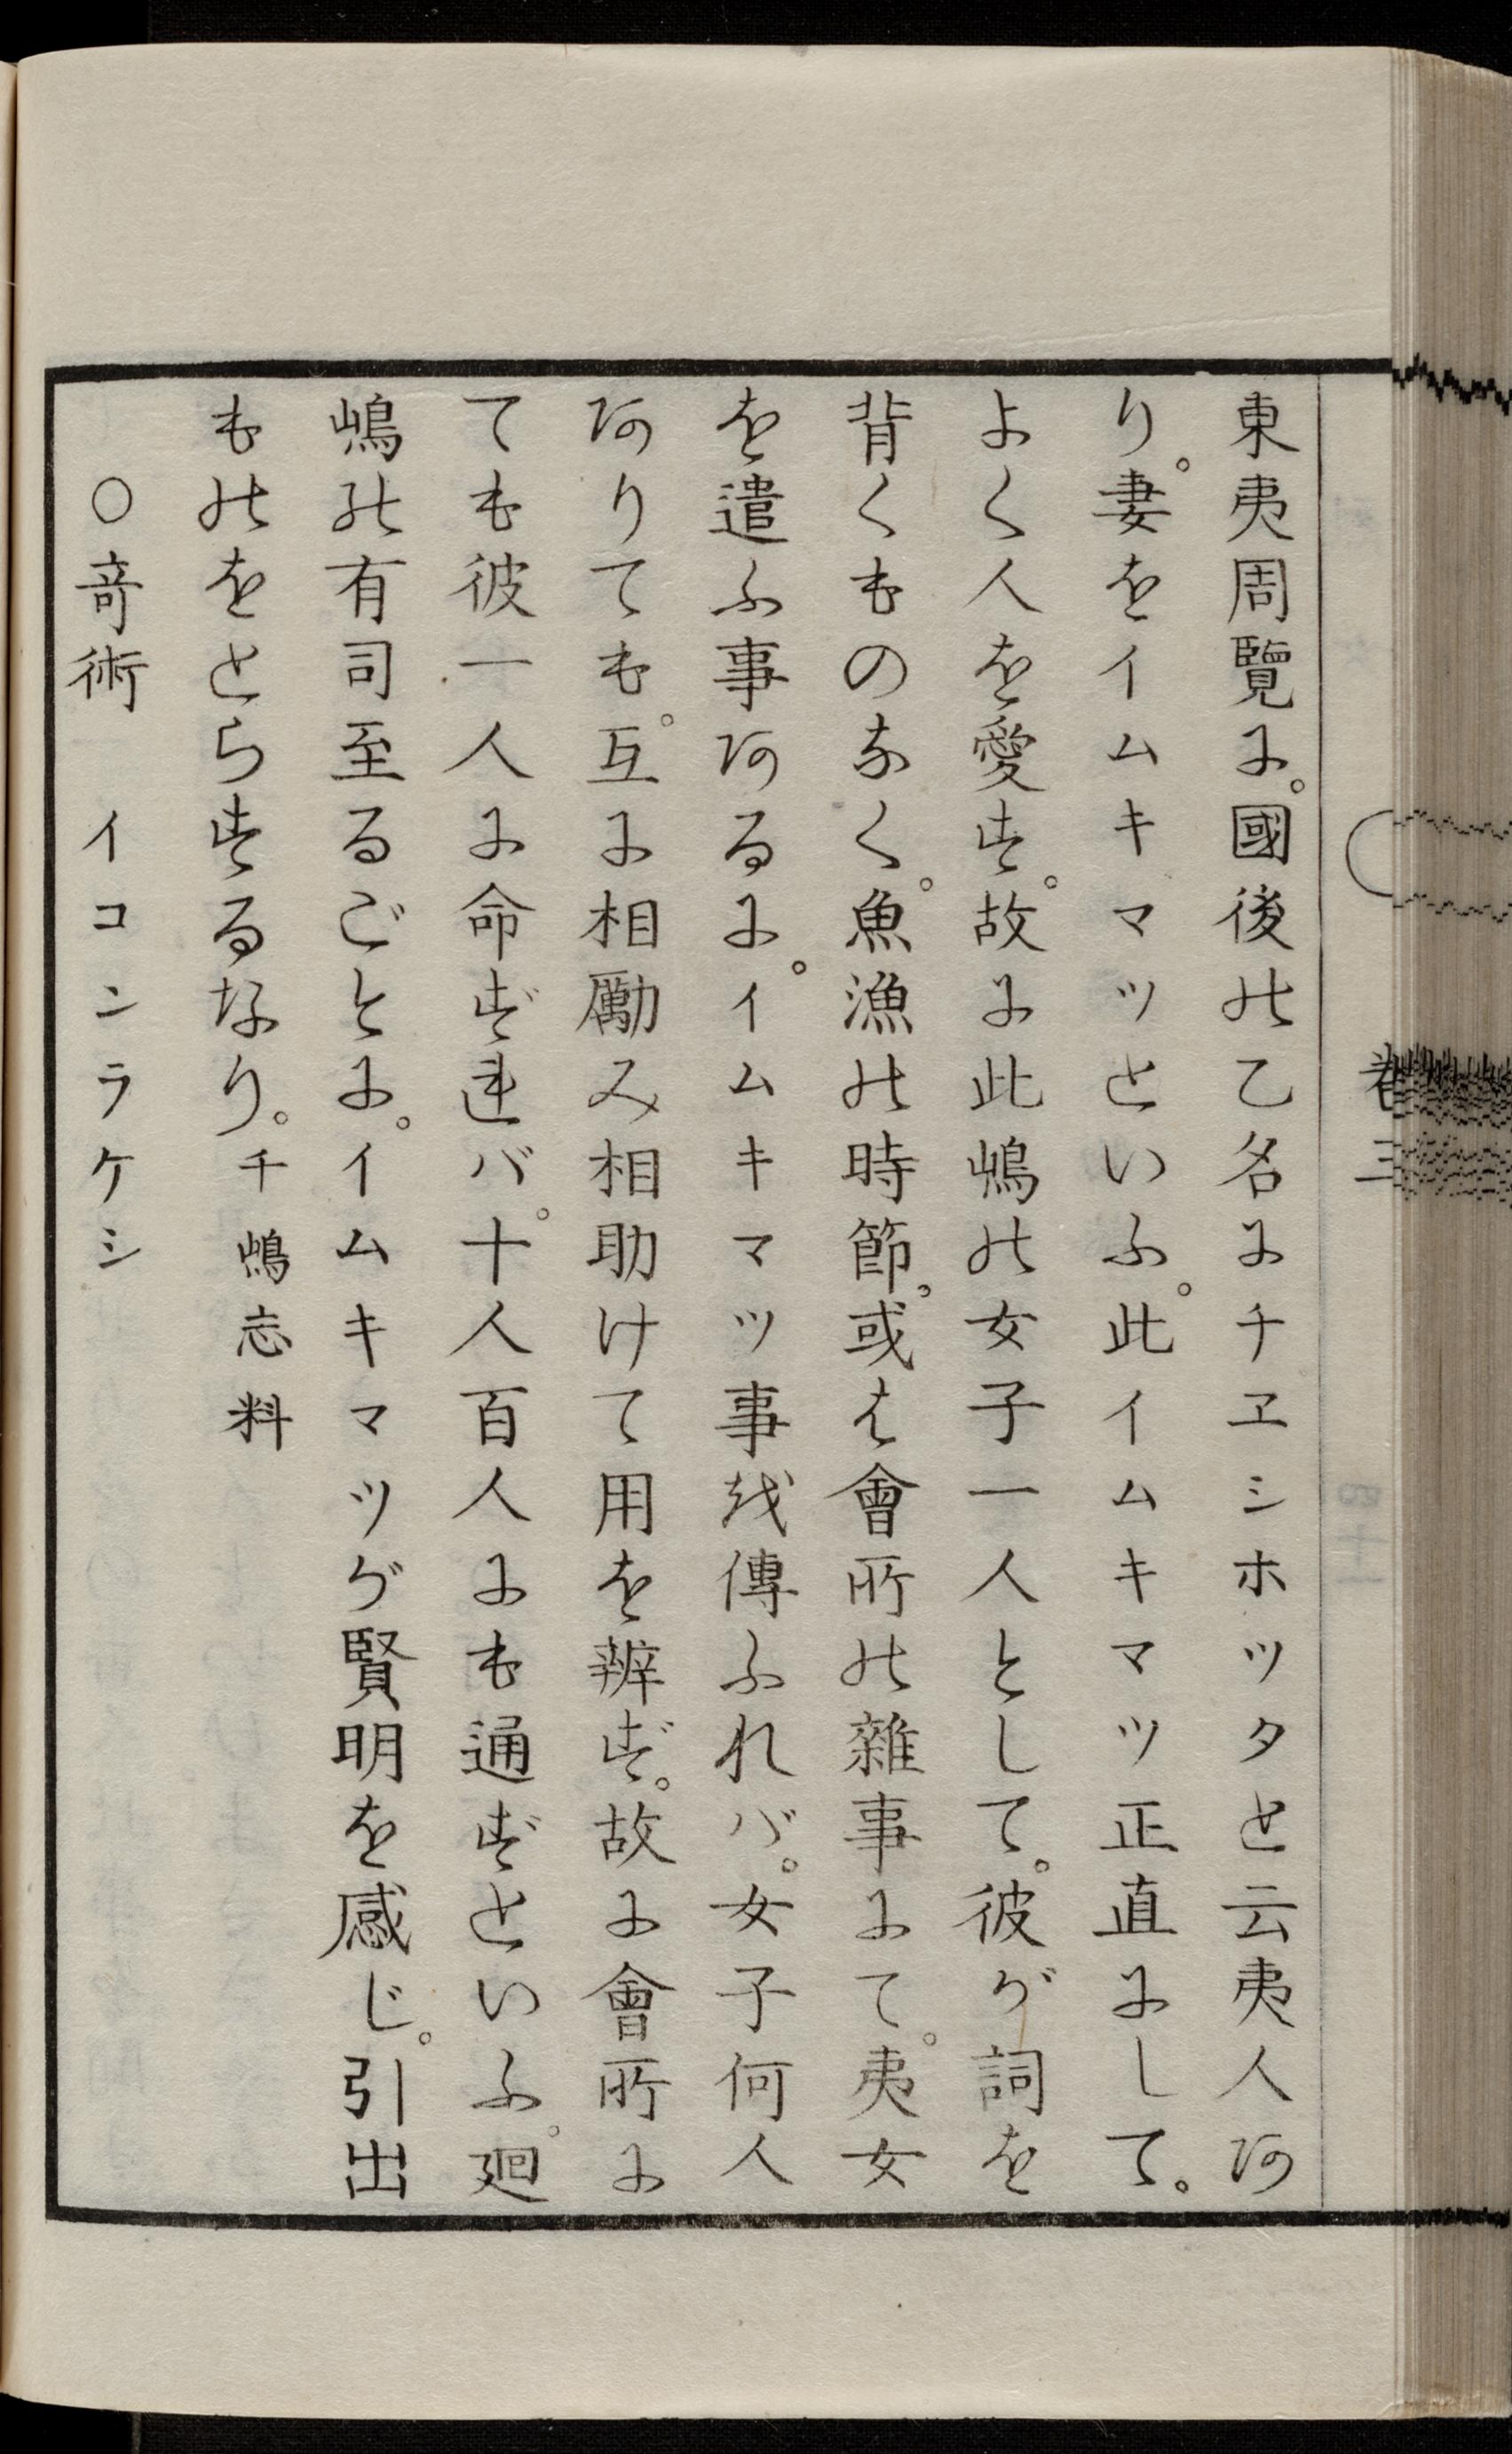 東夷周覽に。國後の乙名にチヱシホツタと云夷人あ
り。妻をイムキマツといふ。此イムキマツ正直にして。
よく人を愛す。故に此嶋の女子一人として。彼が詞を
背くものなく。魚漁の時節。或は會所の雜事にて。夷女
を遣ふ事あるに。イムキマツ事を傳ふれバ。女子何人
ありても。互に相勵み相助けて用を辨ず。故に會所に
ても彼一人に命ず連バ。十人百人にも通ずといふ。廻
嶋の有司至るごとに。イムキマツが賢明を感じ。引出
ものをとらするなり。千嶋志料
○竒術 イコンラケシ
卷三